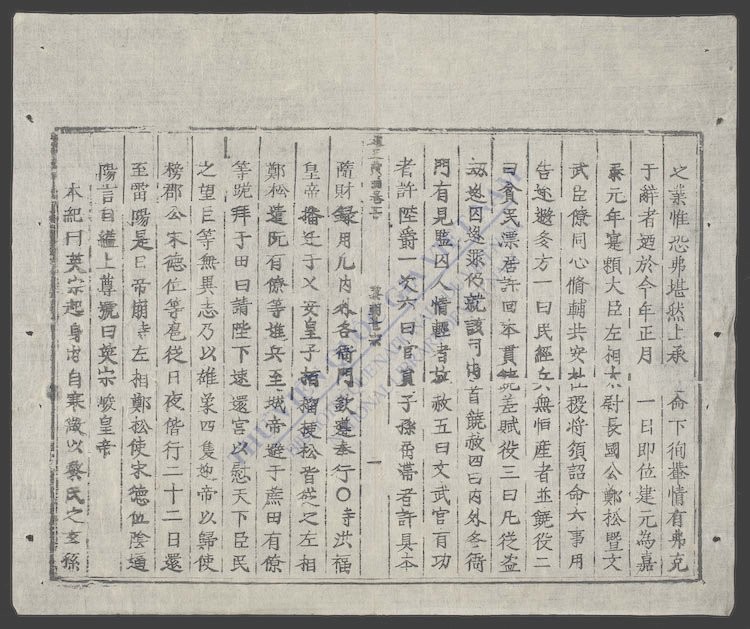 之業惟恐弗堪然上承 俞下徇羣情有弗克
于辭者迺於今年正月 一日即位建元為嘉
泰元年寔頼大臣左相太尉長國公鄭松暨文
武臣僚同心脩輔共安社稷將須詔命六事用
告遐邇多方一曰民經兵無恒産者並饒役二
曰貧民漂居許回本貫饒差賦役三曰凡從盗
劫逃囚逃罪仍就該司内首饒赦四曰内外各衙
門有見監囚人情輕者並赦五曰文武官百功
者許陞爵一次六曰官員子孫冠帯者許具本
英
一
隨財録用凡内外各衙門欽遵奉行○時洪福
皇帝播迁于乂安皇子栢榴梗松皆從之左相
鄭松遣阮有僚等進兵至城帝避于蔗田有僚
等跪拜于田曰請陛下速還宫以慰天下臣民
之望臣等無異志乃以雄象四隻迎帝以歸使
榜郡公宋德位等扈從日夜偕行二十二日還
至雷陽是日帝崩時左相鄭松使宋德位陰逼
陽言自縊上尊號曰英宗峻皇帝
本紀曰英宗起身由自寒微以黎氏之玄孫